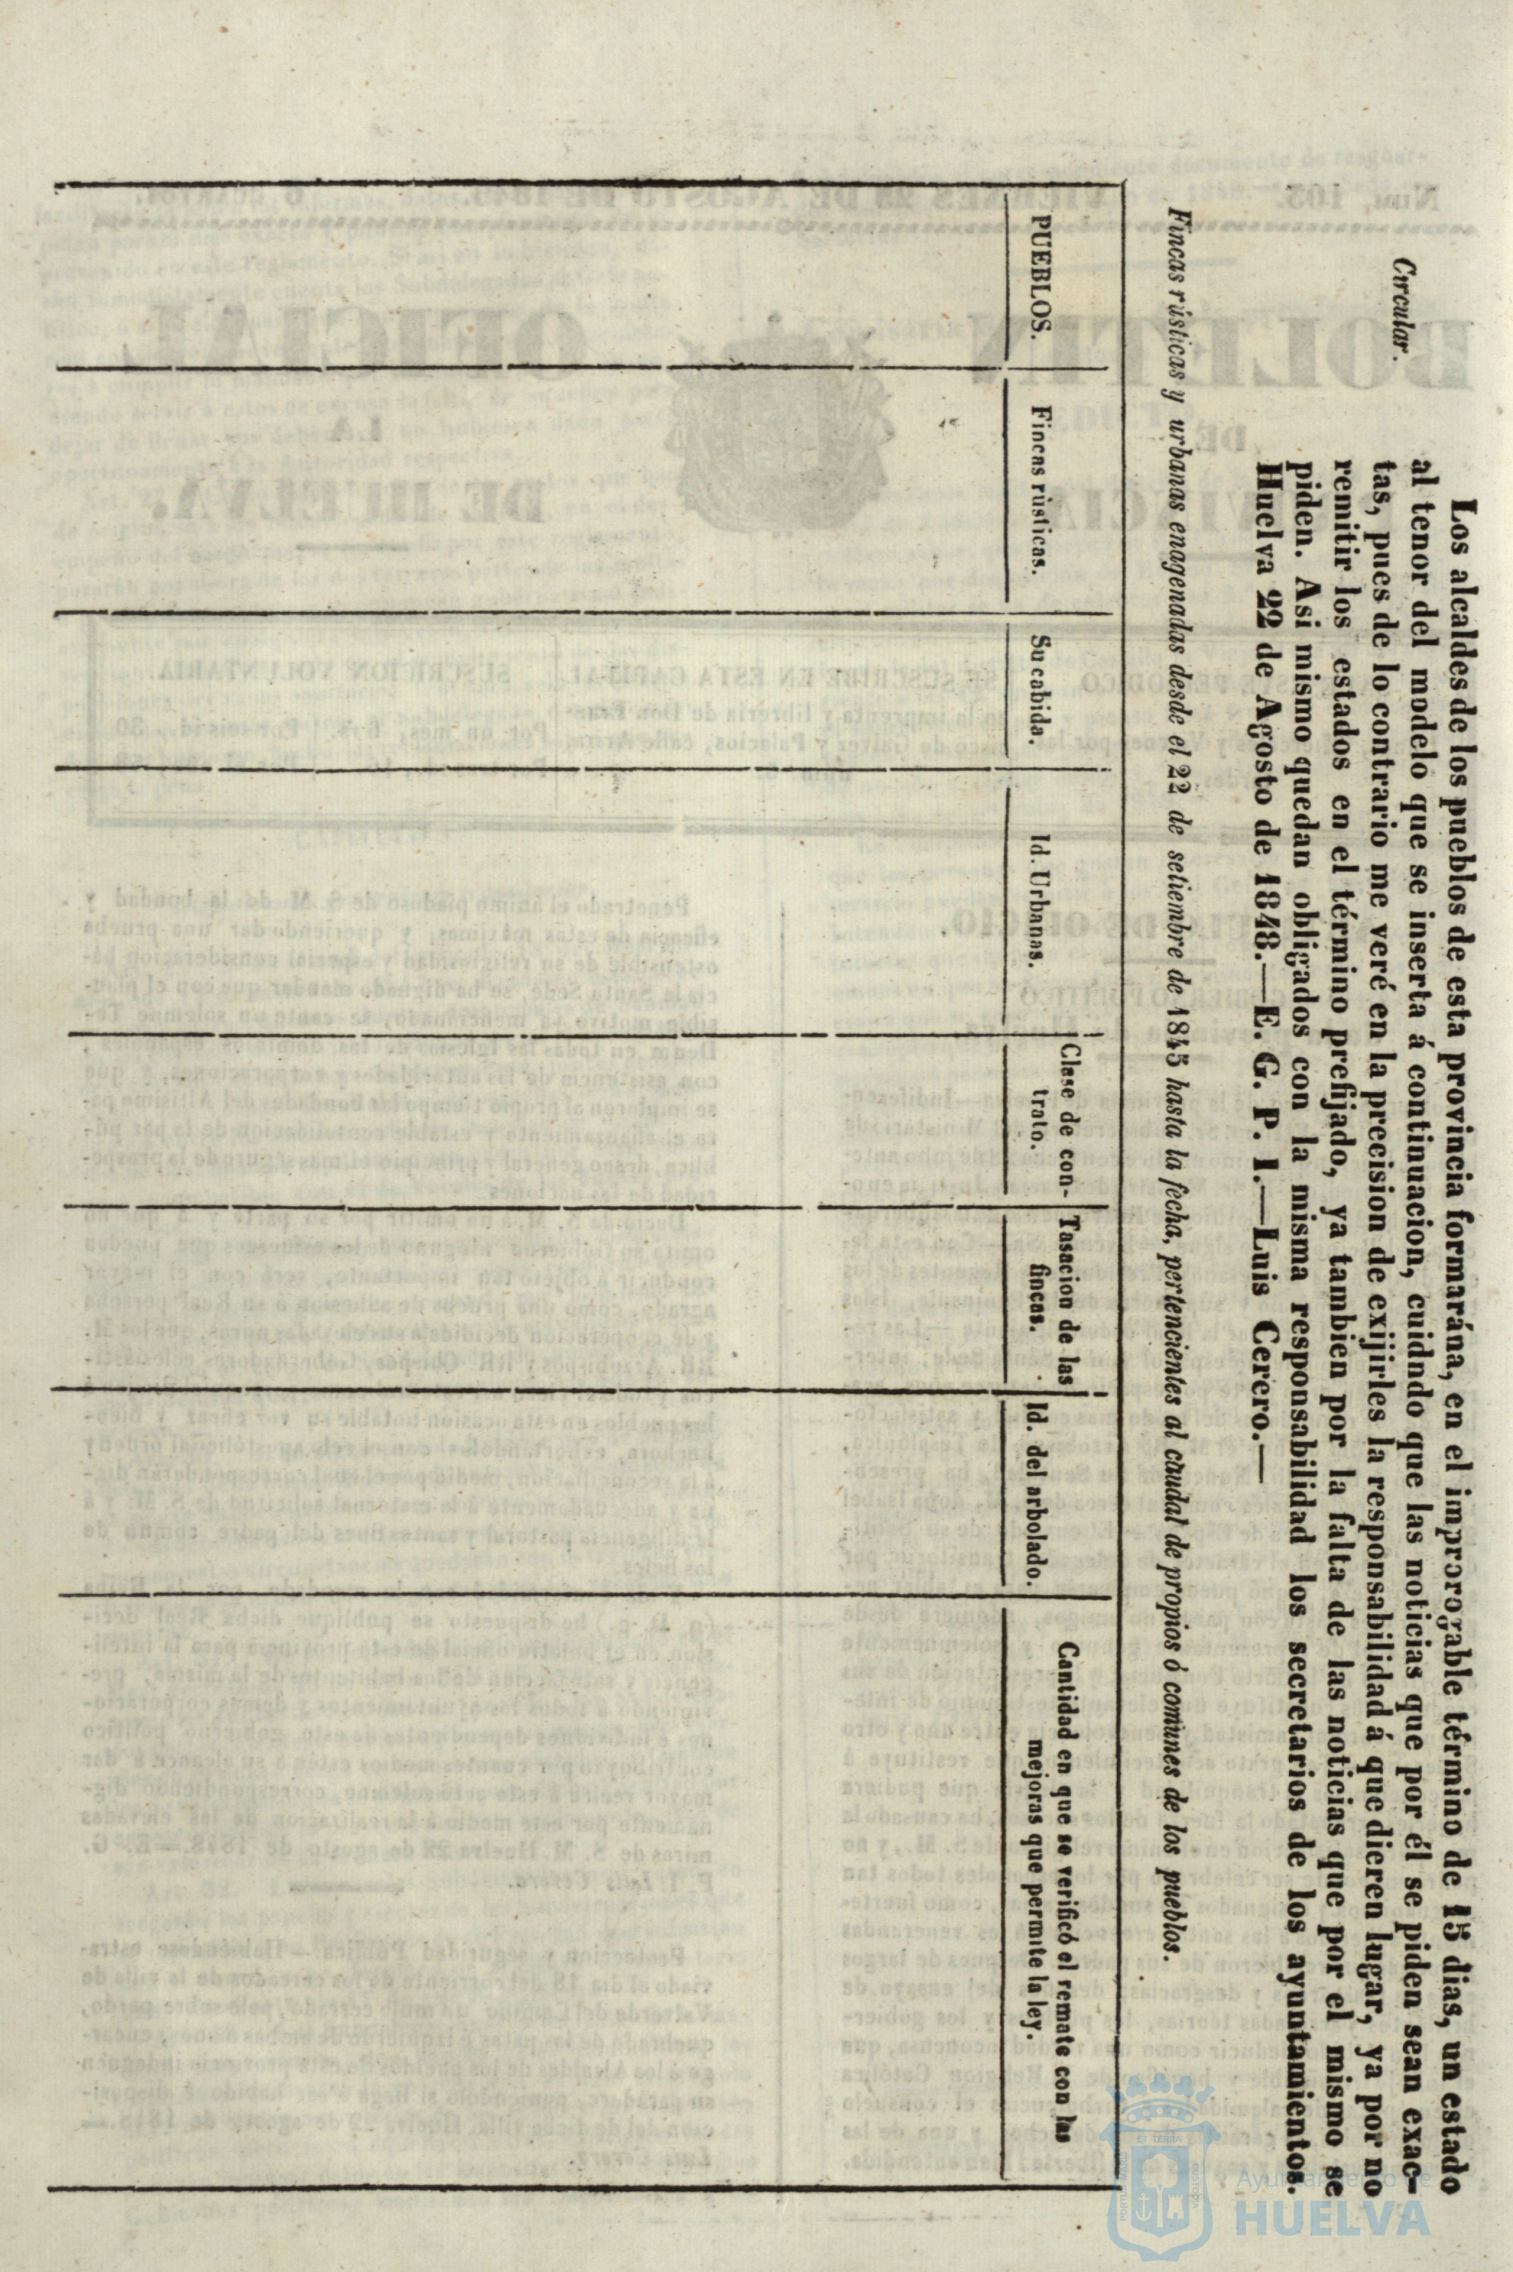 Circular.
Los alcaldes de los pueblos de esta provincia formarána, en el improrogable término de 15 dias, un estado
al tenor del modelo que se inserta á continuacion, cuidndo que las noticias que por él se piden sean exac-
tas, pues de lo contrario me veré en la precision de exijirles la responsabilidad á que dieren lugar, ya por no
remitir los estados en el término prefijado, ya tambien por la falta de las noticias que por el mismo se
piden. Asi mismo quedan obligados con la misma responsabilidad los secretarios de los ayuntamientos.
Huelva 22 de Agosto de 1848.—E. G. P. I.—Luis Cerero.—
Fincas rústicas y urbanas enagenadas desde el 22 de setiembre de 1845 hasta la fecha, pertenecientes al caudal de propios ó comunes de los pueblos.
PUEBLOS.
Fincas rústicas.
Su cabida.
Id. Urbanas.
Clase de con-
trato.
Tasacion de las
fincas.
Id. del arbolado.
Cantidad en que se verificó el remate con las
mejoras que permite la ley.
Ayuntamiento de
HUELVA